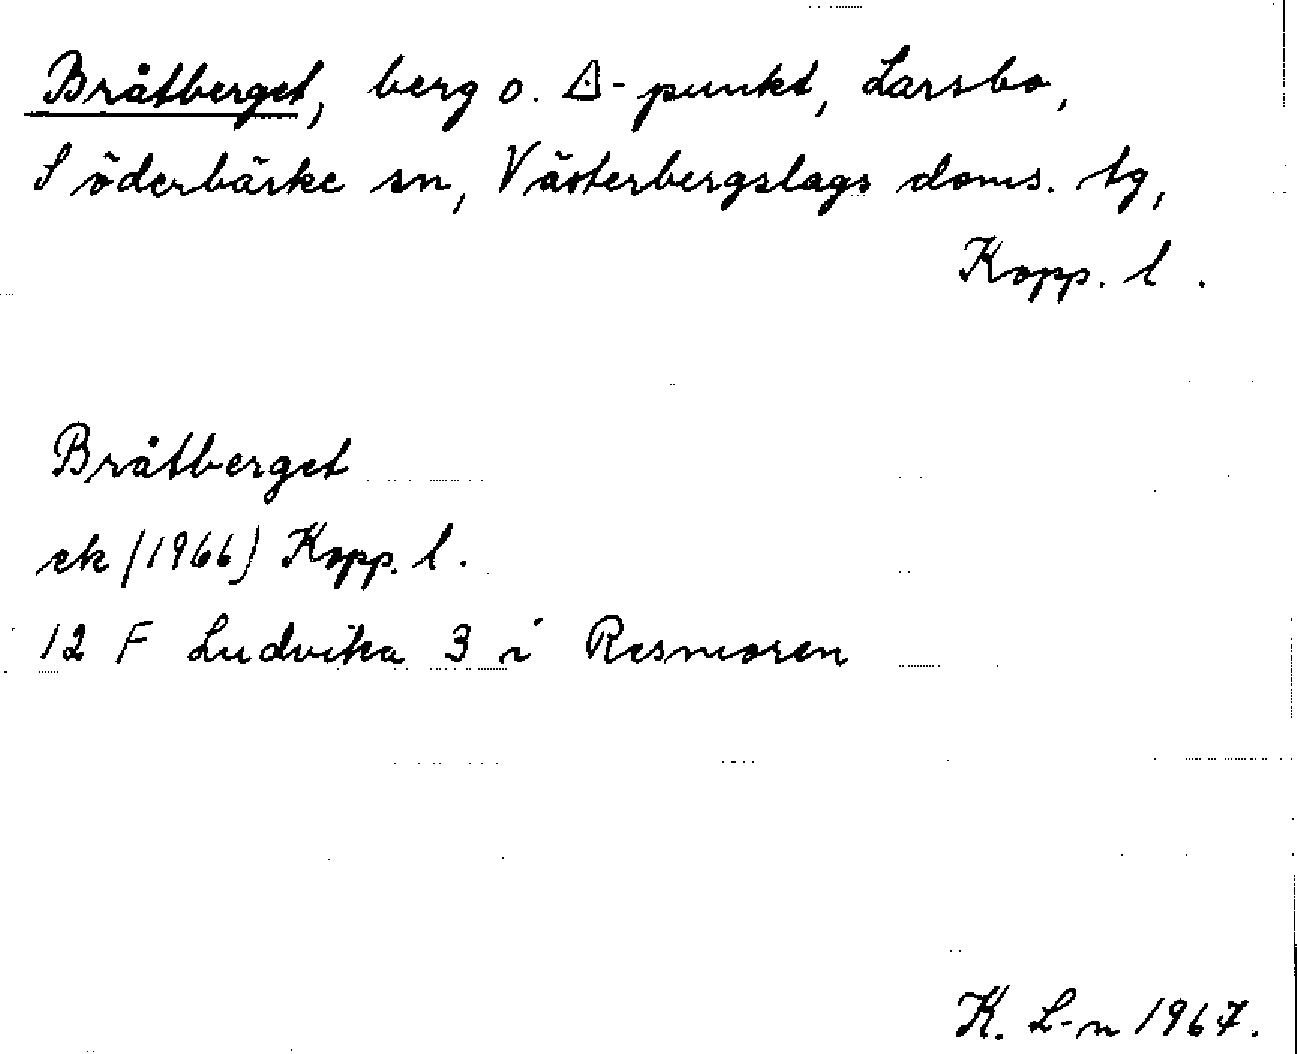 Bråtberget, berg o. ∆-punkt, Larsbo,
Söderbärke sn, Västerbergslags doms. tg,
Kopp. l.
Bråtberget
ek (1966) Kopp. l.
12 F Ludvika 3 i Resmoren
K. L-n 1967.